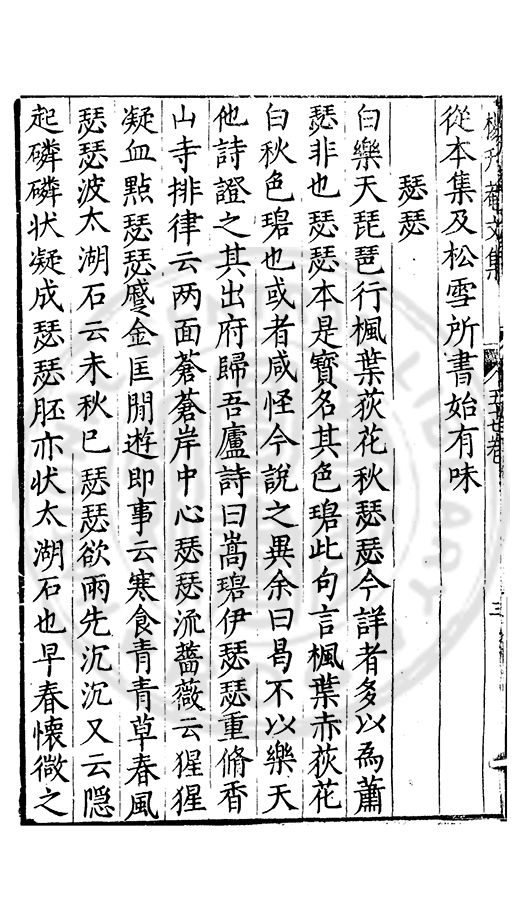 楊升菴文集 五七卷 三
從本集及松雪所書始有味
瑟瑟
白樂天琵琶行楓葉荻花秋瑟瑟今詳者多以為蕭
瑟非也瑟瑟本是寳名其色碧此句言楓葉赤荻花
白秋色碧也或者咸怪今說之異余曰曷不以樂天
他詩證之其出府歸吾廬詩曰嵩碧伊瑟瑟重脩香
山寺排律云两面蒼蒼岸中心瑟瑟流薔薇云猩猩
凝血點瑟瑟蹙金匡閒遊即事云寒食青青草春風
瑟瑟波太湖石云未秋已瑟瑟欲雨先沉沉又云隱
起磷磷状凝成瑟瑟胚亦状太湖石也早春懷微之